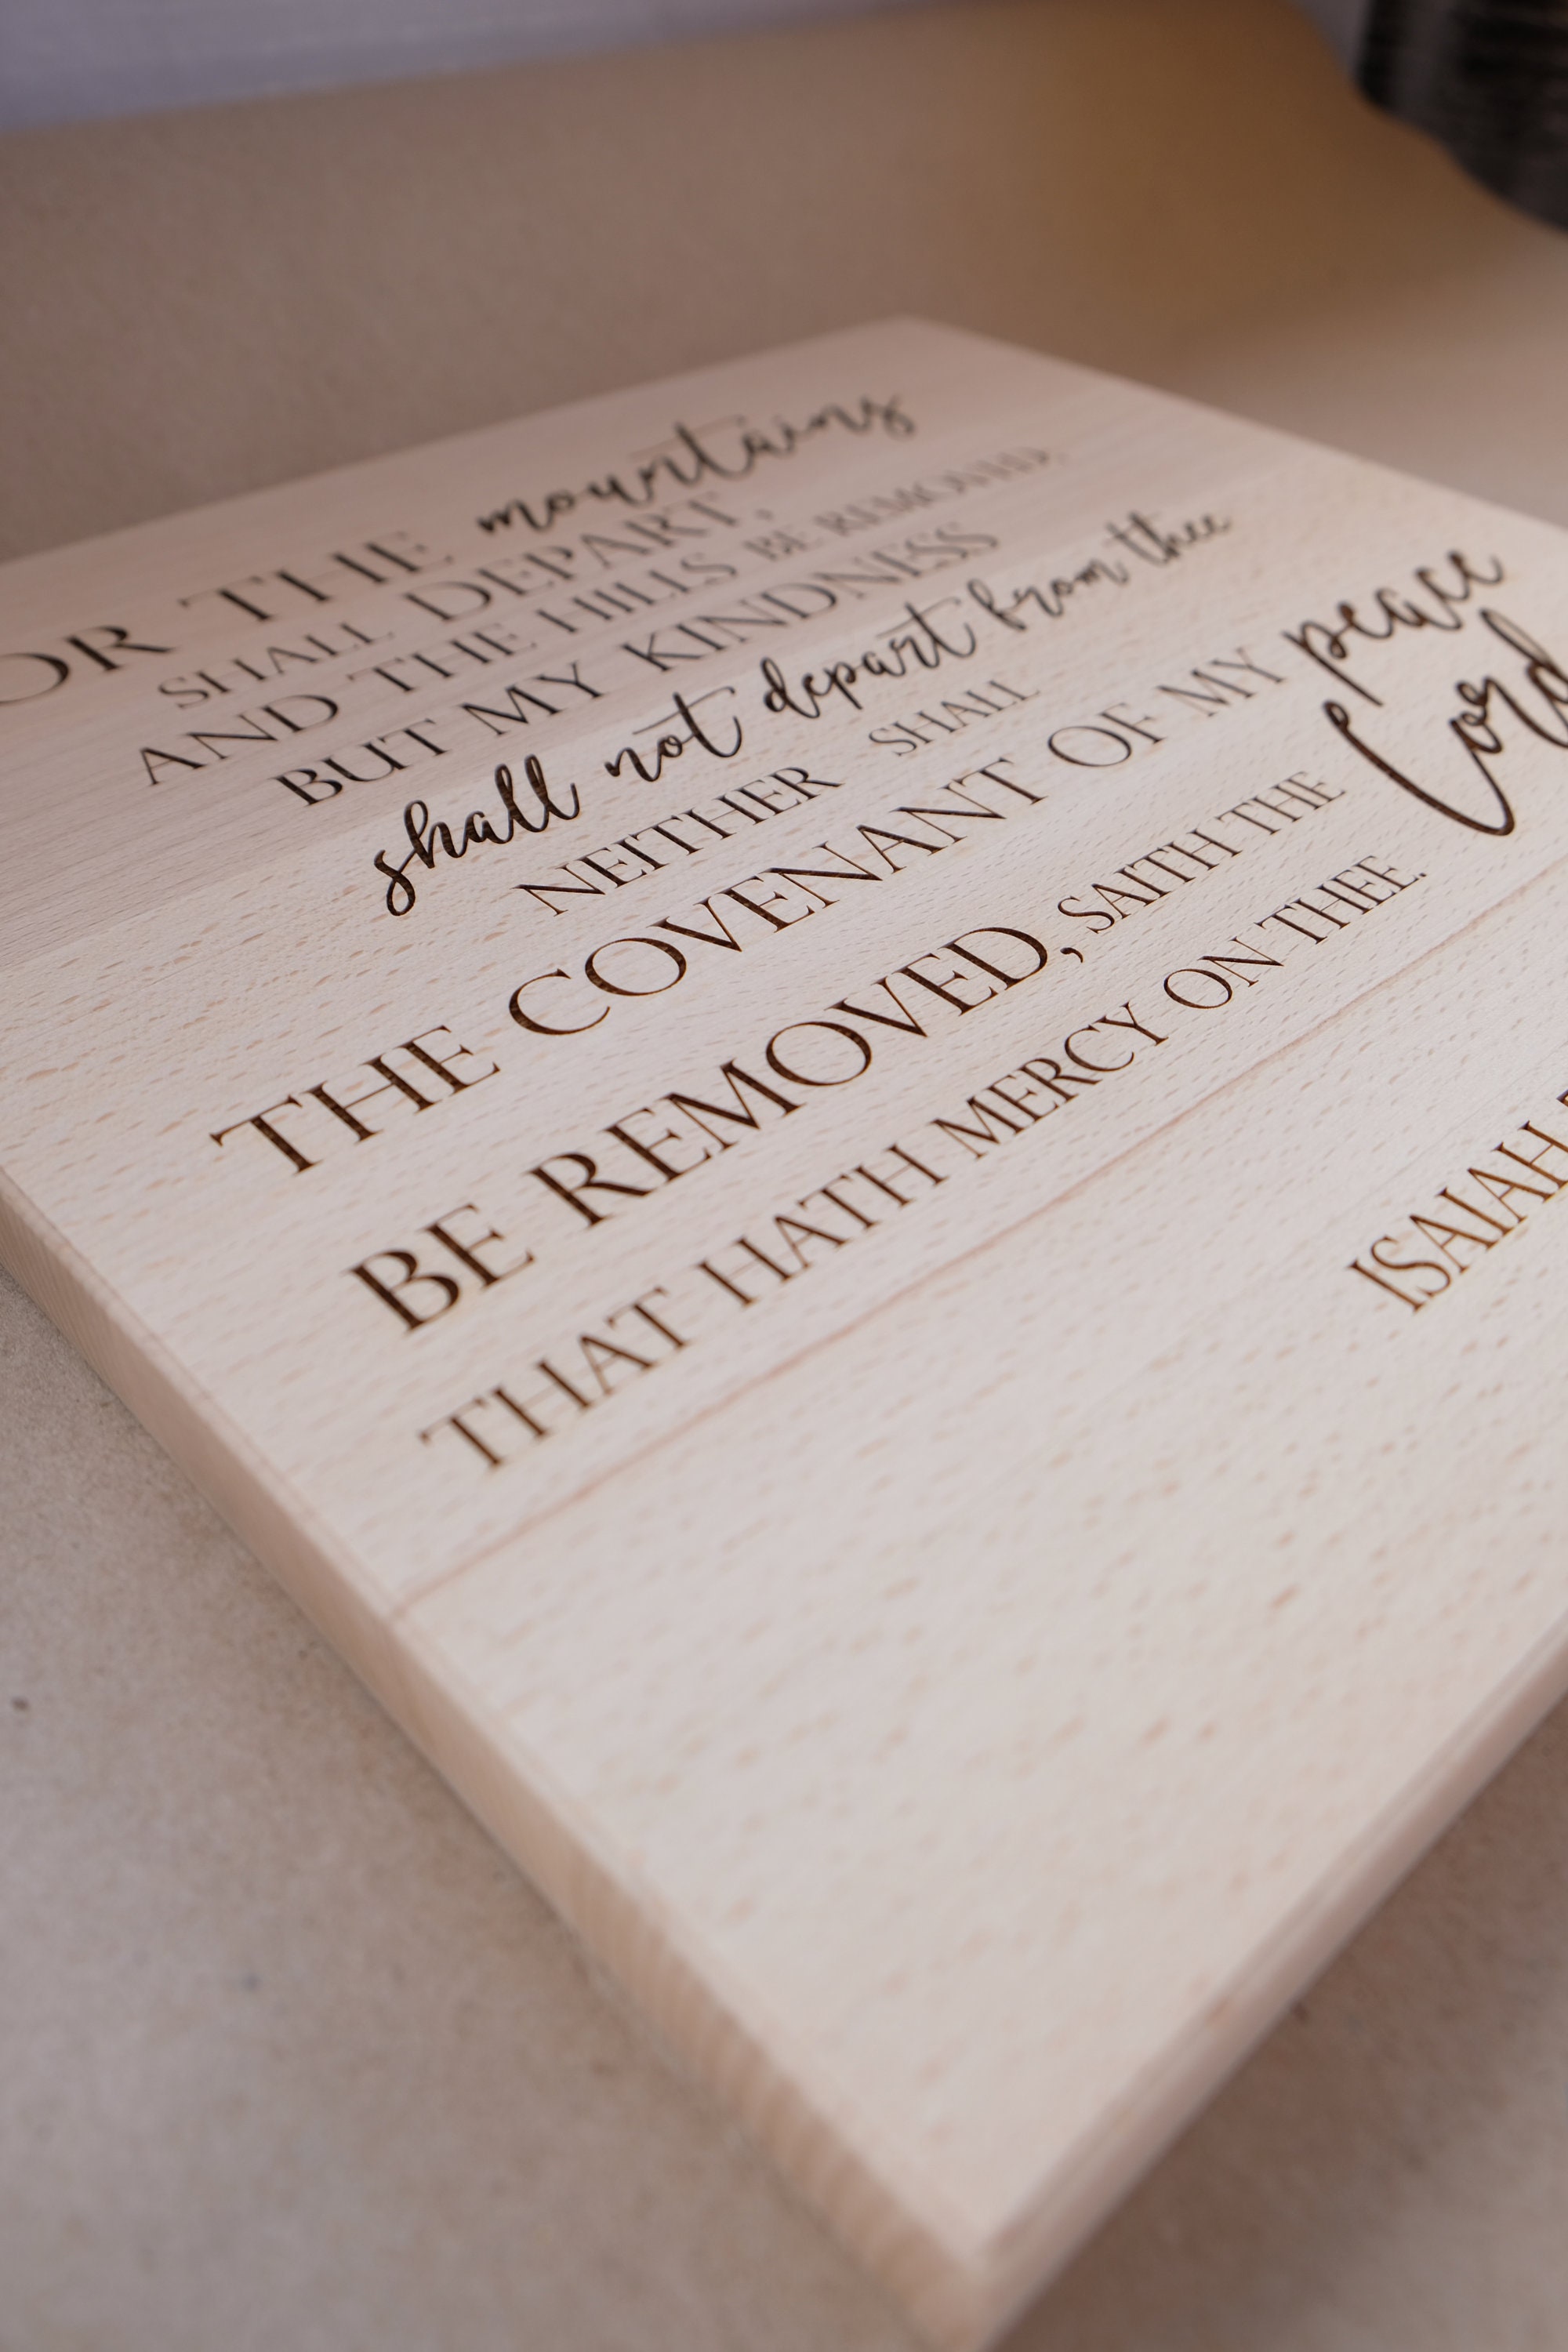 OR THE mountains
SHALL DEPART,
AND THE HILLS BE REMOVED,
BUT MY KINDNESS
shall not depart from thee
NEITHER SHALL
THE COVENANT OF MY peace
BE REMOVED, SAITH THE Lord
THAT HATH MERCY ON THEE.
ISAIAH